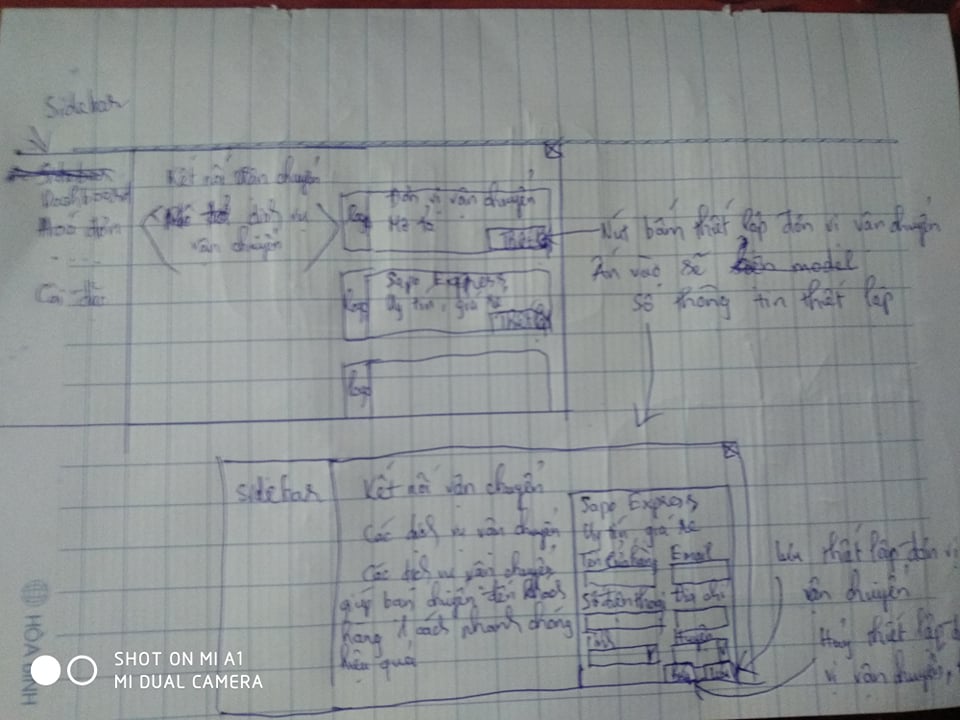 Sidebar
Dashboard
Hoá đơn
Cài đặt
Kết nối vận chuyển
dịch vụ
vận chuyển
logo
Đơn vị vận chuyển
Mô tả
Thiết lập
logo
Sapo Express
Uy tín, giá rẻ
Thiết lập
logo
Nút bấm thiết lập đơn vị vận chuyển
Ấn vào sẽ hiện model
số thông tin thiết lập
sidebar
Kết nối vận chuyển
Các dịch vụ vận chuyển
Các dịch vụ vận chuyển
giúp bạn chuyển đến khách
hàng 1 cách nhanh chóng
hiệu quả
Sapo Express
Uy tín giá rẻ
Tên cửa hàng Email
Số điện thoại Địa chỉ
Tỉnh Huyện
Lưu thiết lập đơn vị
vận chuyển
Huỷ thiết lập đơn
vị vận chuyển
HÒA BÌNH
SHOT ON MI A1
MI DUAL CAMERA